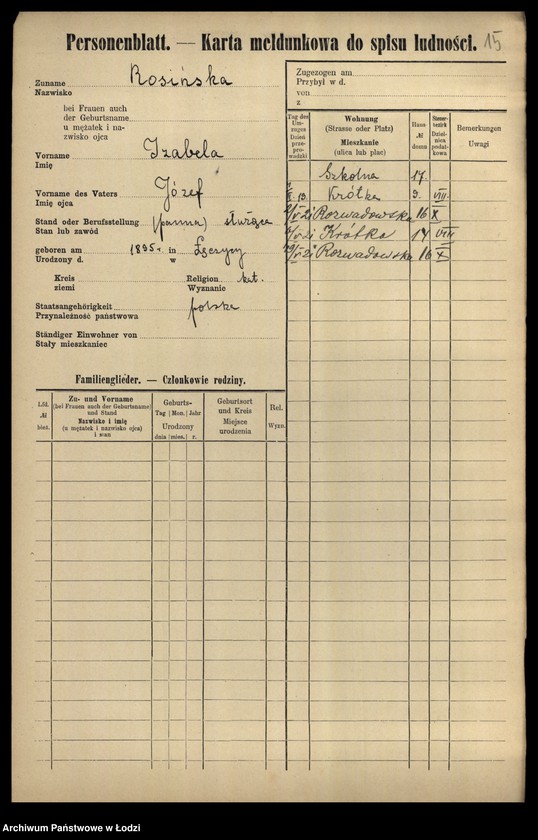 Personenblatt. — Karta meldunkowa do spisu ludności. 15
Zuname Rosińska
Nazwisko
bei Frauen auch
der Geburtsname
u mężatek i na-
zwisko ojca
Vorname Izabela
Imię
Vorname des Vaters Józef
Imię ojca
Stand oder Berufsstellung (panna) służąca
Stan lub zawód
geboren am 1895 r. in
Urodzony d. w
Kreis Religion kat.
ziemi Wyznanie
Staatsangehörigkeit polska
Przynależność państwowa
Ständiger Einwohner von
Stały mieszkaniec
Zugezogen am
Przybył w d.
von
z
Tag des Um-zuges Dzień prze-prowadzki
Wohnung
(Strasse oder Platz)
Mieszkanie
(ulica lub plac)
Haus № domu
Steuer-bezirk Dziel-nica podat-kowa
Bemerkungen
Uwagi
Szkolna 17.
Krótka 9. VIII.
Rozwadowska 16 X
Krótka 14 VIII
Rozwadowska 16 X
Familienglieder. — Członkowie rodziny.
Lfd. № bież.
Zu- und Vorname
(bei Frauen auch der Geburtsname)
und Stand
Nazwisko i imię
(u mężatek i nazwisko ojca)
i stan
Geburts-
Tag Mon. Jahr
Urodzony
dnia mies. r.
Geburtsort
und Kreis
Miejsce
urodzenia
Rel.
Wyzn.
Archiwum Państwowe w Łodzi